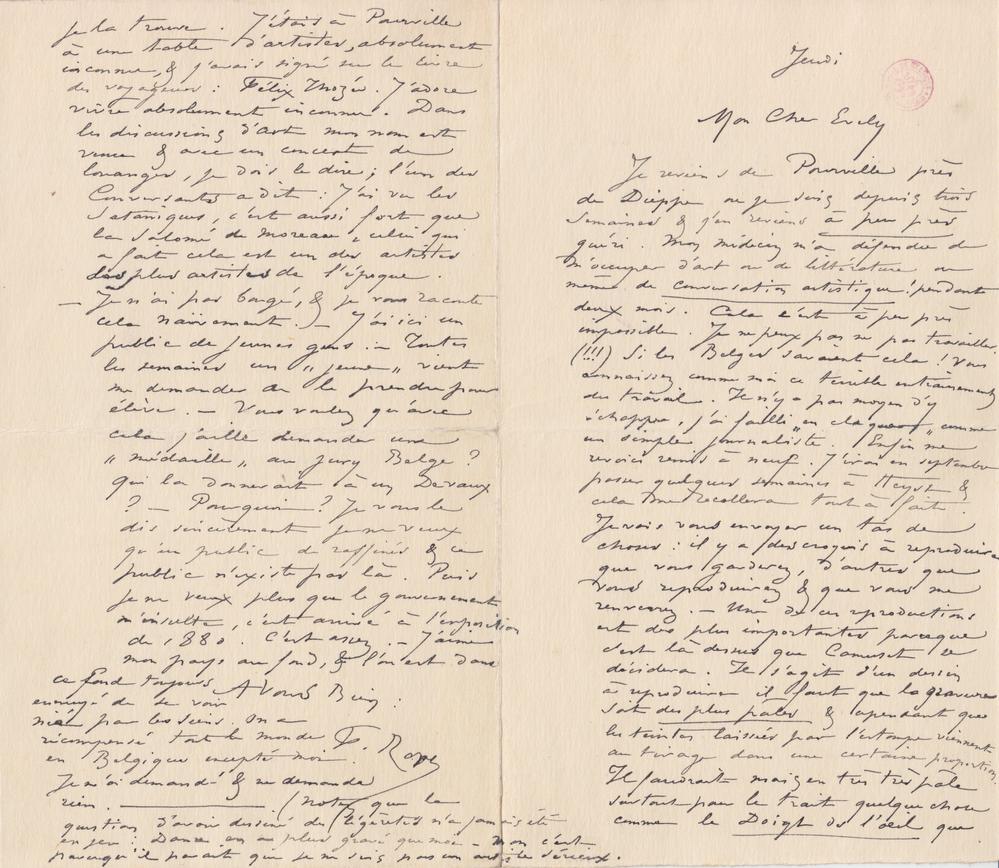 Jeudi
Mon Cher Evely
Je reviens de Pourville près
de Dieppe où je suis depuis trois
semaines & j'en reviens à peu près
guéri. Mon médecin m'a défendu de
m'occuper d'art ou de littérature ou
même de conversation artistique ! pendant
deux mois. Cela c'est à peu près
impossible. Je ne peux pas ne pas travailler.
(!!!) Si les Belges savaient cela ! Vous
connaissez comme moi ce terrible entrainement
du travail. Il n'y a pas moyen d'y
échapper, j'ai failli „en claquer„ comme
un simple journaliste. Enfin me
revoici remis à neuf. J'irai en septembre
passer quelques semaines à Heyst &
cela me recollera tout à fait.
Je vais vous envoyer un tas de
choses : il y a des croquis à reproduire
que vous garderez, d'autres que
vous reproduirez & que vous me
renverrez. – Une de ces reproductions
est des plus importantes parceque
c'est là dessus que Camuset se
décidera. Il s'agit d'un dessin
à reproduire il faut que la gravure
soit des plus pales & cependant que
les teintes laissées par l'estompe viennent
au tirage dans une certaine proportion.
Il faudrait mais en très très pâle
surtout pour le trait quelque chose
comme le Doigt dans l'œil que
je la trouve. J'étais à Pourville
à une table d'artistes, absolument
inconnu, & j'avais signé sur le livre
des voyageurs : Félix Thozée. J'adore
vivre absolument inconnu. Dans
les discussions d'art mon nom est
venu & avec un concert de
louanges, je dois le dire ; l'un des
Conversants a dit : J'ai vu les
Sataniques, c'est aussi fort que
la Salomé de Moreau, celui qui
a fait cela est un des artistes
les plus artistes de l'époque.
— Je n'ai pas bougé, & je vous raconte
cela naïvement. – J'ai ici un
public de jeunes gens. – Toutes
les semaines un „jeune„ vient
me demander de le prendre pour
élève. – Vous voulez qu'avec
cela j'aille demander une
„médaille„ au jury Belge ?
qui la donnerait à un Devaux
? – Pourquoi ? Je vous le
dis sincèrement je ne veux
qu'un public de raffinés & ce
public n'existe pas là. Puis
je ne veux plus que le gouvernement
m'insulte, c'est arrivé à l'exposition
de 1880. C'est assez. – J'aime
mon pays au fond, & l'on est dans
ce fond toujours
ennuyé de se voir
nié par les siens. On a
récompensé tout le monde
en Belgique excepté moi.
Je n'ai demandé & ne demande
rien.
A Vous Bien :
F. Rops
(notez que la
question d'avoir dessiné des légèretés n'a jamais été
en jeu : Danse en a plus gravé que moi – non c'est
parcequ'il parait que je ne suis pas un artiste sérieux.